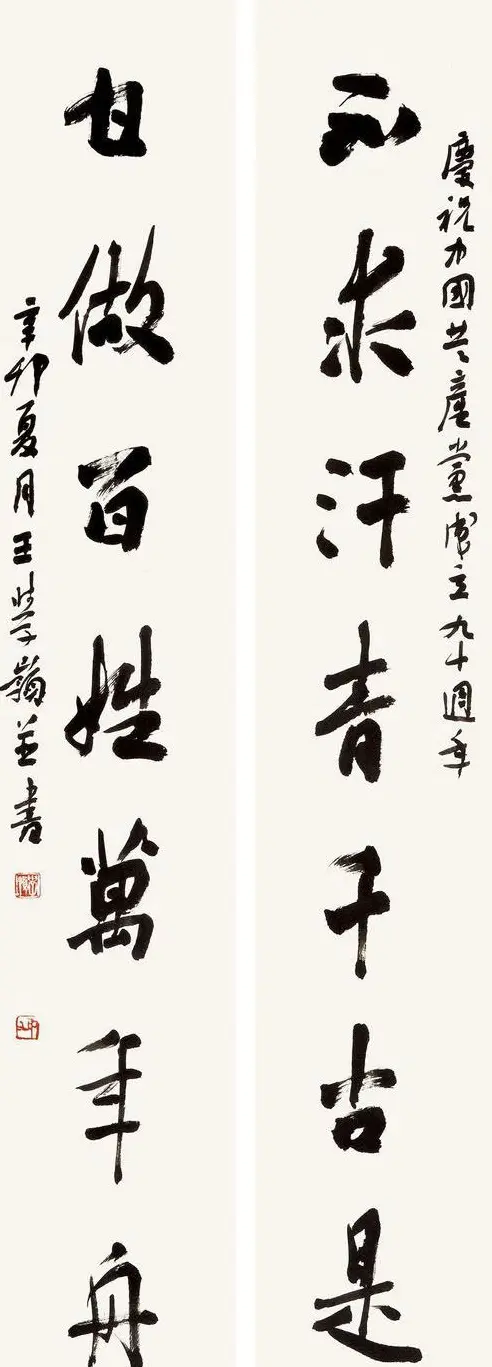 慶祝中國共產黨成立九十週年
不求汗青千古是
甘做百姓萬年舟
辛卯夏月王學嶺並書